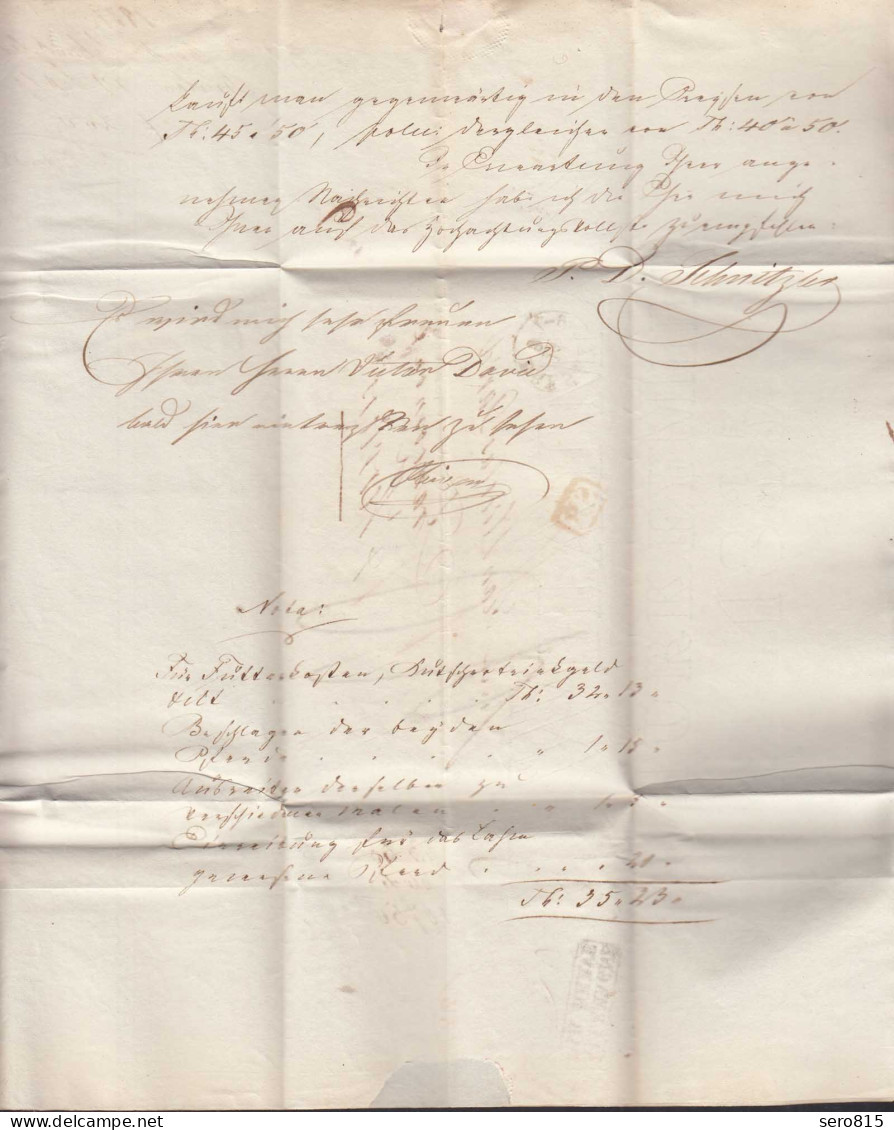 kauft man gegenwärtig in den Preisen von
Th: 45 a 50, dergleichen von Th: 40 a 50.
In Erwartung Ihrer ange-
nehmen Nachrichten habe ich die Ehre mich
Ihnen auf das Hochachtungsvollste zu empfehlen
P. D. Schnitzler
Es wird mich sehr freuen
Ihren Herrn Victor David
bald hier zu sehen
Nota:
Für Futterkosten, Kutschertrinkgeld
Th: 32 " 13 "
Beschlagen der beyden
Pferde . . . . . " 1 " 15 "
Ausreiten derselben zu
verschiedenen malen " 1 " 5 "
für das lahm
gewesene Pferd . . . . 20 "
Th: 35 " 23 "
sero815